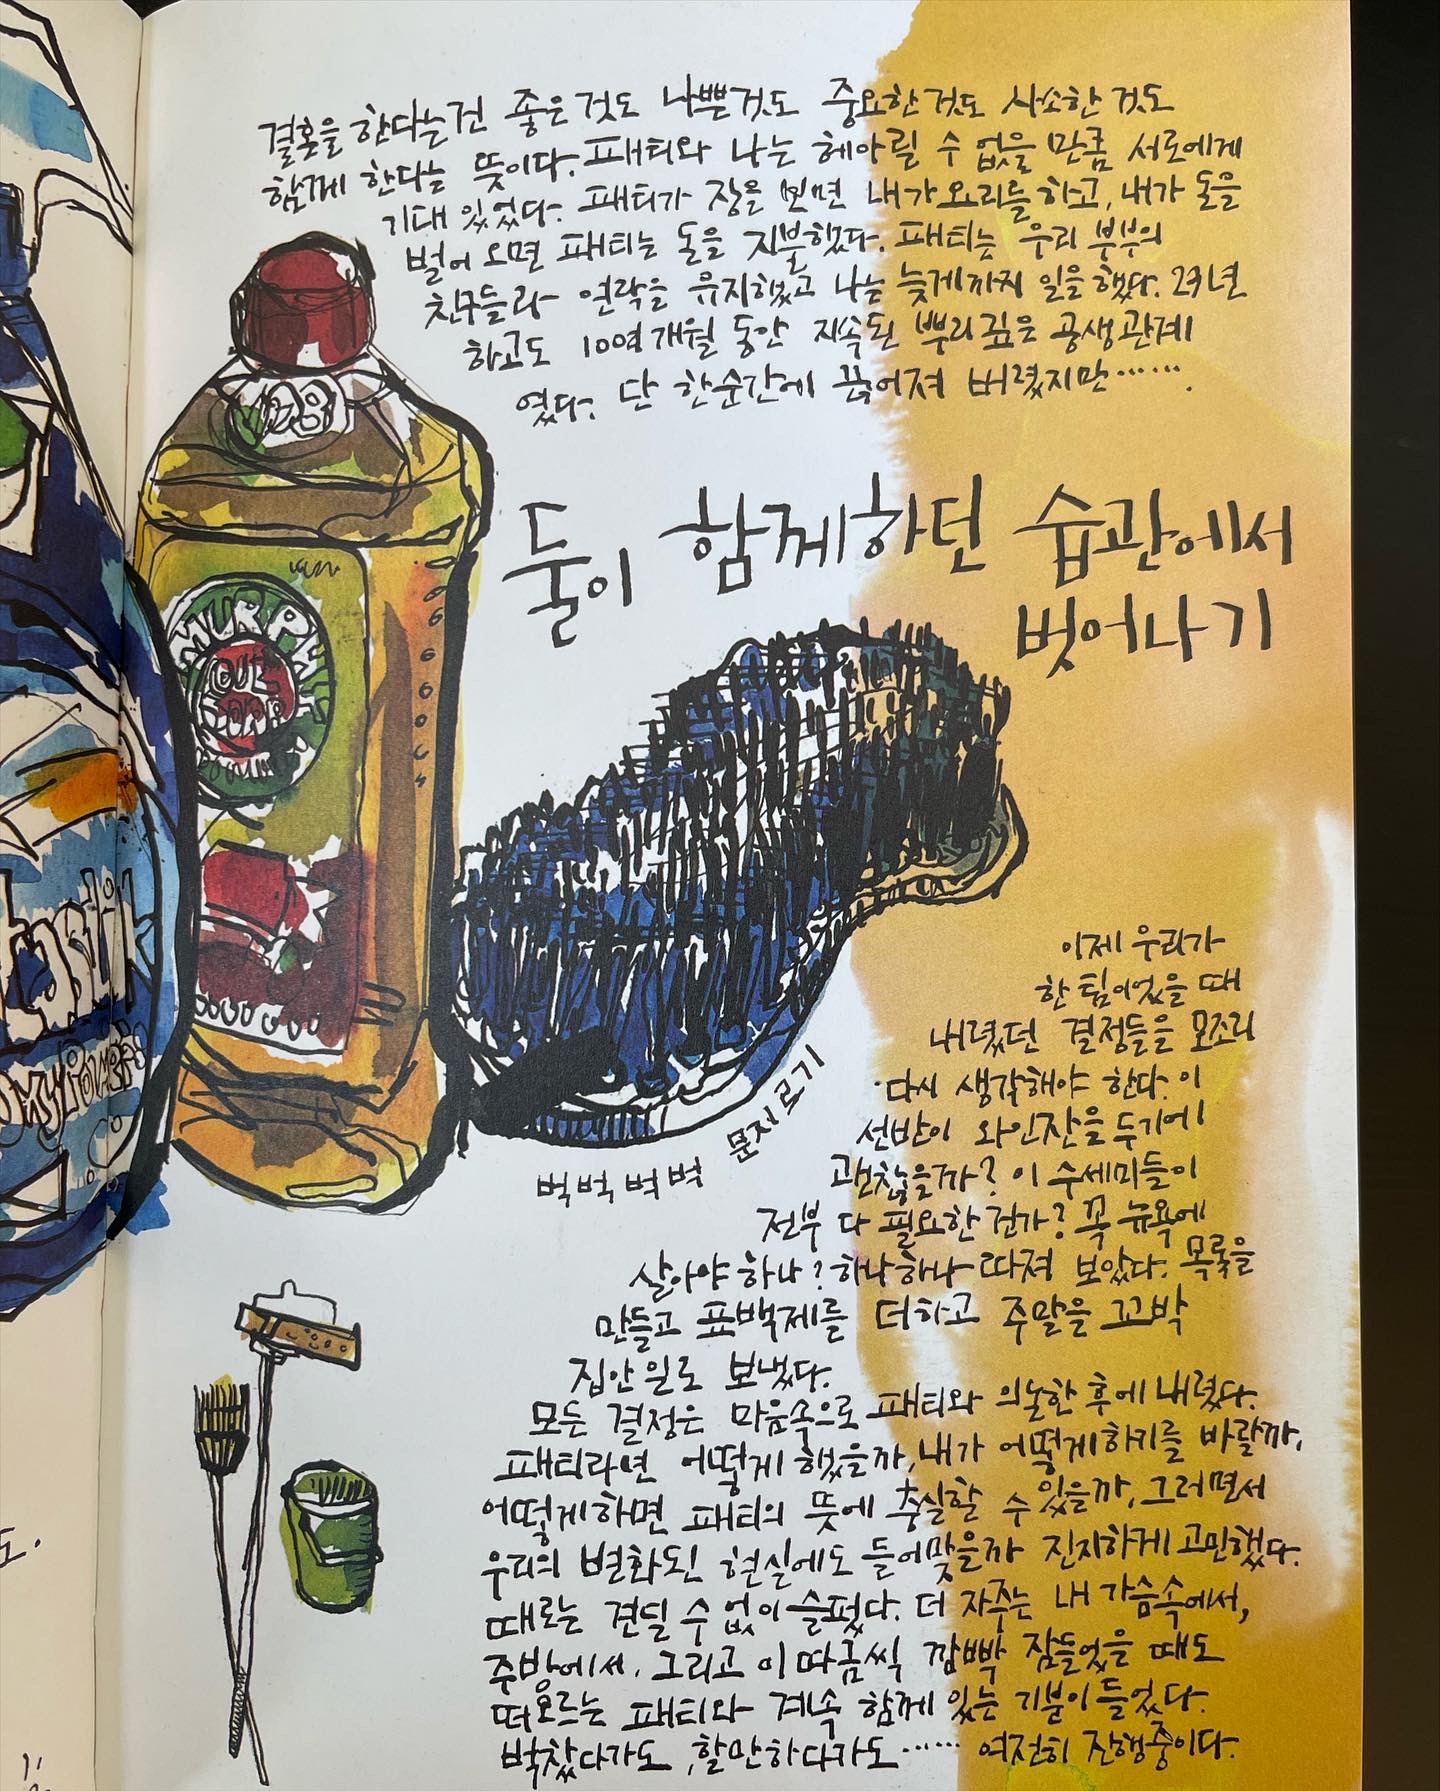 결혼을 한다는건 좋은것도 나쁜것도 중요한것도 사소한 것도
함께 한다는 뜻이다. 패티와 나는 헤아릴 수 없을 만큼 서로에게
기대 있었다. 패티가 장을 보면 내가 요리를 하고, 내가 돈을
벌어 오면 패티는 돈을 지불했다. 패티는 우리 부부의
친구들과 연락을 유지했고 나는 늦게까지 일을 했다. 29년
하고도 10여개월 동안 지속된 뿌리깊은 공생관계
였다. 단 한순간에 끊어져 버렸지만…….
둘이 함께하던 습관에서
벗어나기
MURPHY
OIL
SOAP
이제 우리가
한 팀이었을 때
내렸던 결정들을 모조리
다시 생각해야 한다. 이
선반이 와인잔을 두기에
괜찮을까? 이 수세미들이
전부 다 필요한 건가? 꼭 뉴욕에
살아야 하나? 하나하나 따져 보았다. 목록을
만들고 표백제를 더하고 주말을 꼬박
집안일로 보냈다.
벅벅벅벅 문지르기
모든 결정은 마음속으로 패티와 의논한 후에 내렸다.
패티라면 어떻게 했을까, 내가 어떻게하기를 바랄까,
어떻게하면 패티의 뜻에 충실할 수 있을까, 그러면서
우리의 변화된 현실에도 들어맞을까 진지하게 고민했다.
때로는 견딜 수 없이 슬펐다. 더 자주는 내 가슴속에서,
주방에서, 그리고 이따금씩 깜빡 잠들었을 때도
떠오르는 패티와 계속 함께 있는 기분이 들었다.
벅찼다가도, 할만하다가도…… 여전히 진행중이다.